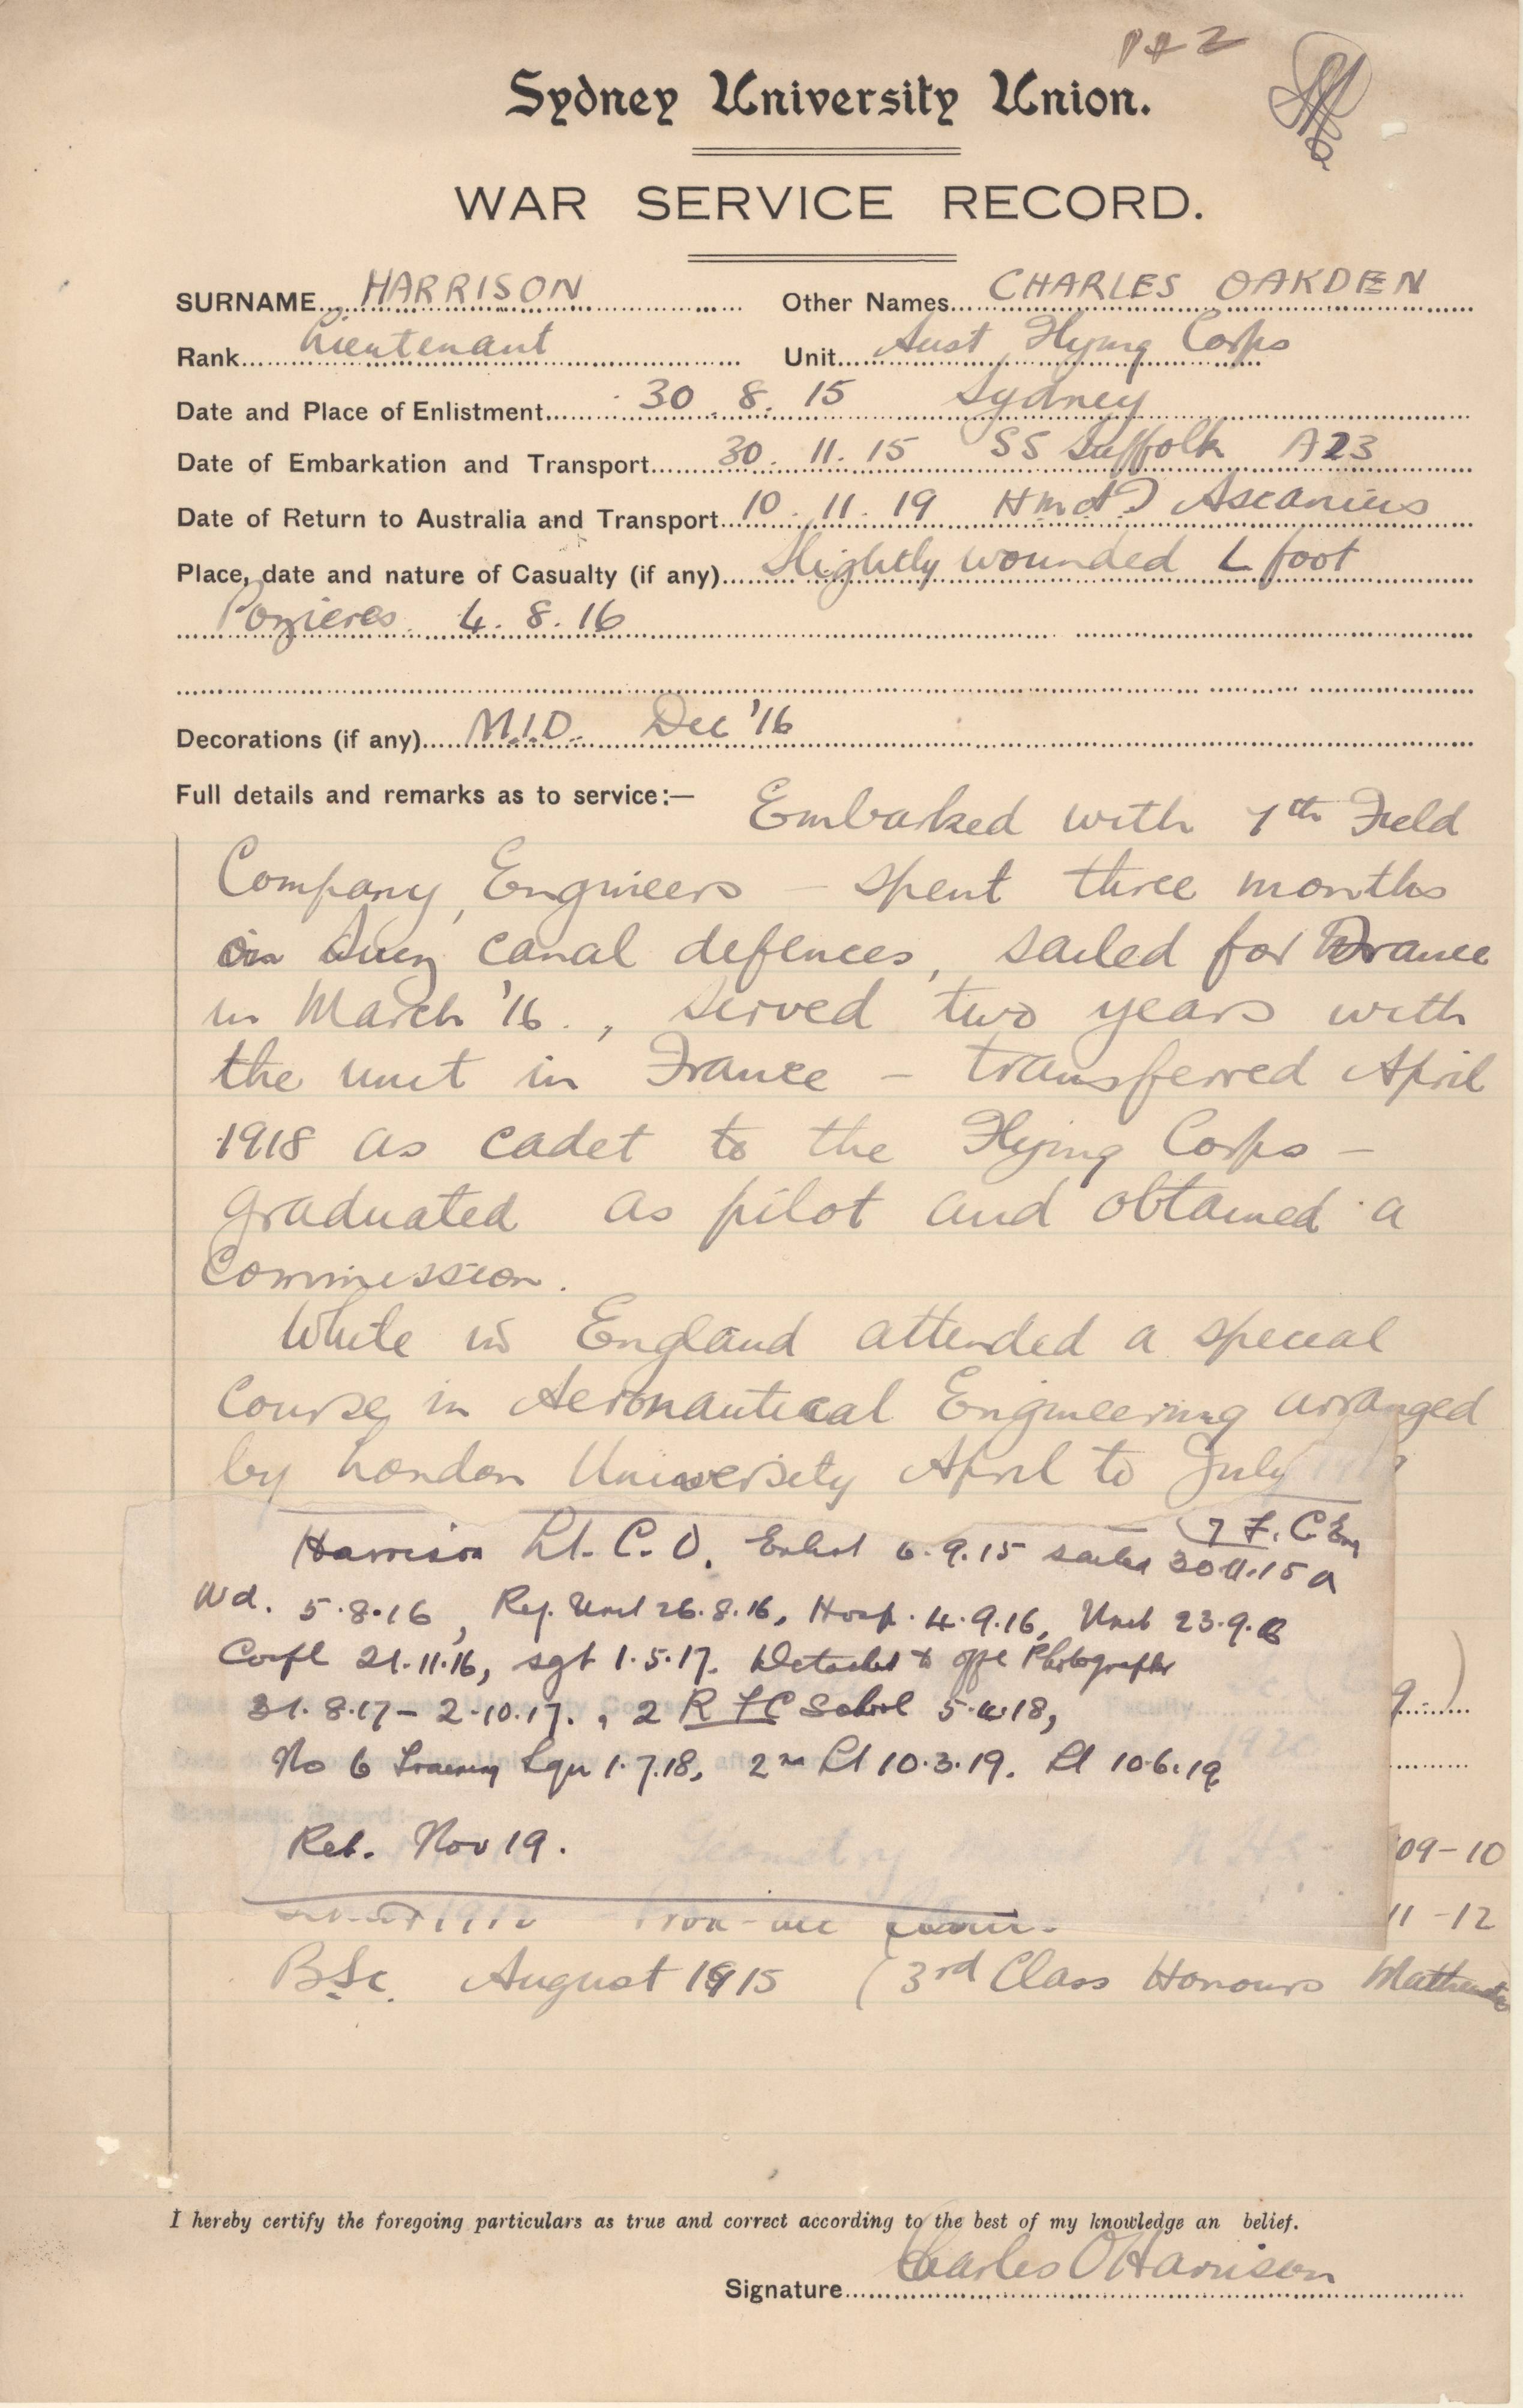 Sydney University Union.
WAR SERVICE RECORD.
SURNAME HARRISON Other Names CHARLES OAKDEN
Rank Lieutenant Unit Aust Flying Corps
Date and Place of Enlistment 30. 8. 15 Sydney
Date of Embarkation and Transport 30. 11. 15 SS Suffolk A23
Date of Return to Australia and Transport 10. 11. 19 Ascanius
Place, date and nature of Casualty (if any) Slightly wounded L foot
Pozieres 4. 8. 16
Decorations (if any) M.I.D. Dec '16
Full details and remarks as to service:— Embarked with 7th Field
Company, Engineers - spent three months
on Suez canal defences, sailed for France
in March '16., served two years with
the unit in France - transferred April
1918 as cadet to the Flying Corps -
graduated as pilot and obtained a
Commission.
While in England attended a special
Course in Aeronautical Engineering arranged
by London University April to July
7 F. C. Eng
Harrison Lt. C. O. Enlist 6.9.15 sailed 30.11.15
Wd. 5.8.16, Rej. Unit 26.8.16, Hosp. 4.9.16, Unit 23.9.
Corpl 21.11.16, sgt 1.5.17. Detached to
31.8.17 - 2.10.17., 2 R F C School 5.4.18,
No 6 Training Sqn 1.7.18, 2nd Lt 10.3.19. Lt 10.6.19
Ret. Nov 19.
09-10
11-12
BSc. August 1915 (3rd Class Honours
I hereby certify the foregoing particulars as true and correct according to the best of my knowledge an belief.
Signature Charles O Harrison